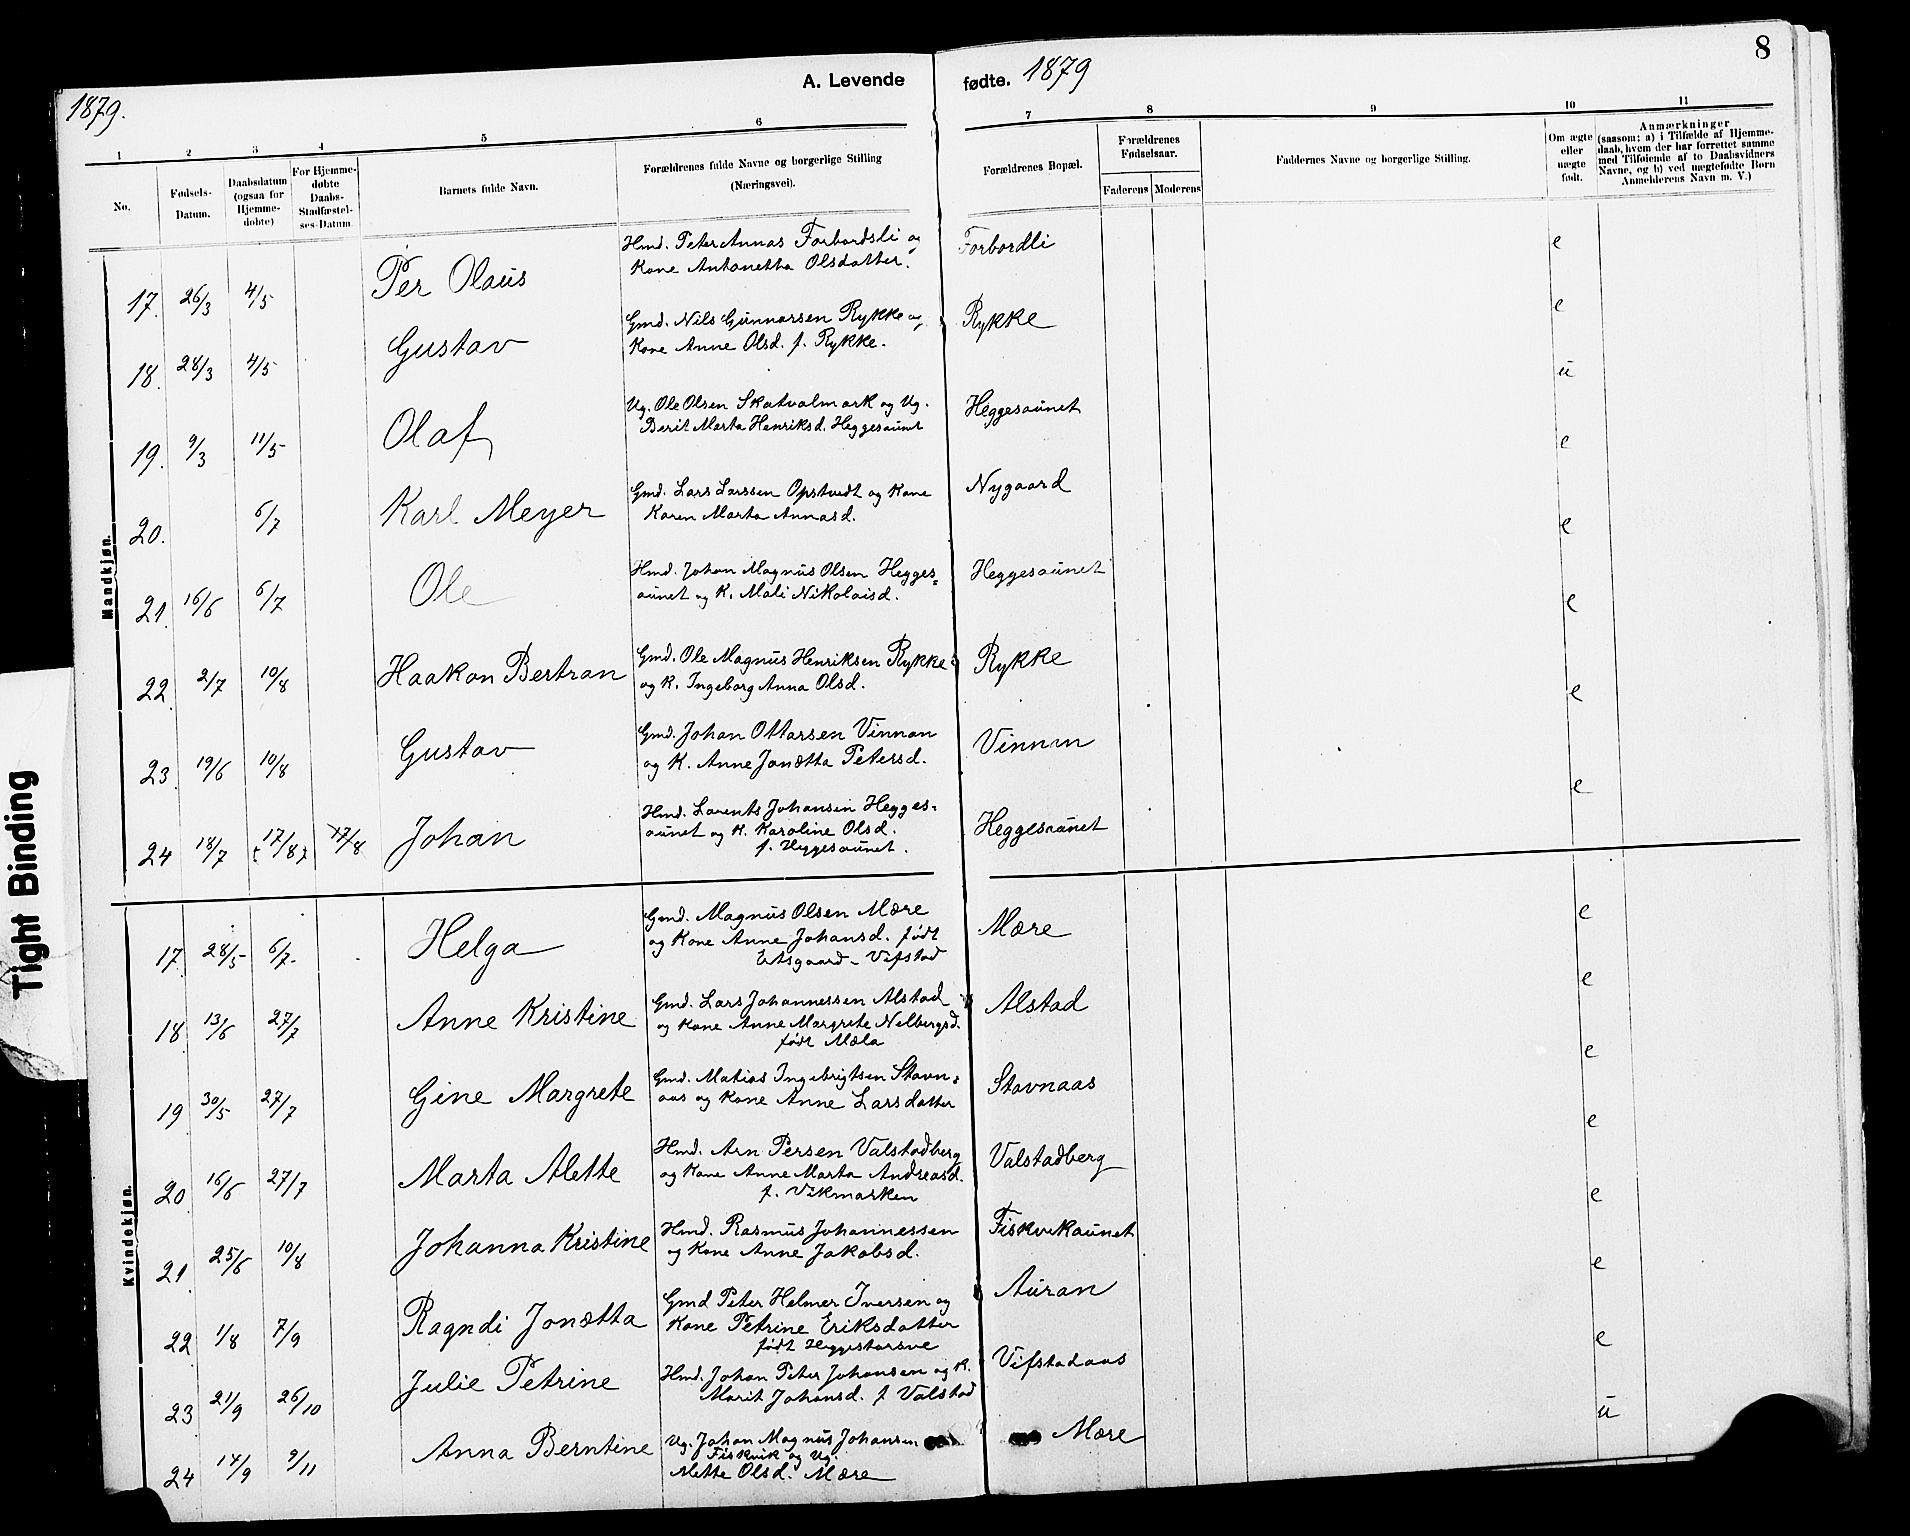 8
1879.
A. Levende fødte. 1879
1 2 3 4 5 6 7 8 9 10 11
No.
Fødsels-
Datum.
Daabsdatum
(ogsaa for
Hjemme-
døbte)
For Hjemme-
døbte
Daabs-
Stadfæstel-
ses-Datum
Barnets fulde Navn.
Forældrenes fulde Navne og borgerlige Stilling
(Næringsvei).
Forældrenes Bopæl.
Forældrenes
Fødselsaar.
Faderens Moderens
Faddernes Navne og borgerlige Stilling.
Om ægte
eller
uægte
født.
Anmærkninger
(saasom: a) i Tilfælde af Hjemme-
daab, hvem der har forrettet samme
med Tilføiende af to Daabsvidners
Navne, og b) ved uægtefødte Børn
Anmelderens Navn m. V.)
Mandkjøn.
Hmd. Peter Annas Forbordsli og Forbordli e
Kone Antonetta Olsdatter.
17. 26/3 4/5 Per Olaus
Gmd. Nils Gunnarsen Rykke og Rykke e
Kone Anne Olsd. f. Rykke.
18. 28/3 4/5 Gustav
Ug. Ole Olsen Skatvalmark og Ug. Heggesaunet u
Berit Marta Henriksd. Heggesaunet
19. 9/3 11/5 Olaf
Gmd. Lars Larssen Opstvedt og Kone Nygaard e
Karen Marta Annasd.
20. 6/7 Karl Meyer
Hmd. Johan Magnus Olsen Hegges= Heggesaunet e
aunet og K. Mali Nikolaisd.
21. 16/6 6/7 Ole
Gmd. Ole Magnus Henriksen Rykke Rykke e
og K. Ingeborg Anna Olsd.
22. 2/7 10/8 Haakon Bertran
Gmd. Johan Ottarsen Vinnan Vinnan e
og K. Anne Jonetta Petersd.
23 19/6 10/8 Gustav
Hmd. Lorents Johansen Hegges= Heggesaunet e
aunet og K. Karoline Olsd.
f. Heggesaunet.
24 18/7 17/8 17/8 Johan
Kvindekjøn.
Gmd. Magnus Olsen Mære Mære e
og Kone Anne Johansd. født
Utsgaard - Vifstad
17 28/5 6/7 Helga
Gmd. Lars Johannessen Alstad Alstad e
og Kone Anne Margrete Nelbergsd.
født Mæla
18 13/6 27/7 Anne Kristine
Gmd. Matias Ingebrigtsen Stavn= Stavnaas e
aas og Kone Anne Larsdatter
19 30/5 27/7 Gine Margrete
Hmd. Arn Persen Valstadberg Valstadberg e
og Kone Anne Marta Andreasd.
f. Vikmarken
20 16/6 27/7 Marta Alette
Hmd. Rasmus Johannessen Fiskvekaunet e
og Kone Anne Jakobsd.
21 25/6 10/8 Johanna Kristine
Gmd Peter Helmer Iversen og Auran e
Kone Petrine Eriksdatter
født Heggstarsve
22 1/8 7/9 Ragndi Jonetta
Hmd. Johan Peter Johansen og K. Vifstadaas e
Marit Johansd. f Valstad
23 21/9 26/10 Julie Petrine
Ug. Johan Magnus Johansen Mære u
Fiskvik og Ug.
Mette Olsd. Mære
24 14/9 9/11 Anna Berntine
Tight Binding